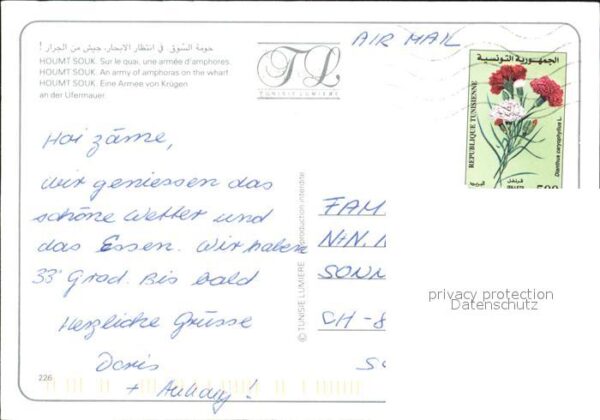 حومة السّوق في انتظار الابحار، جيش من الجرار !
HOUMT SOUK. Sur le quai, une armée d'amphores.
HOUMT SOUK. An army of amphoras on the wharf.
HOUMT SOUK. Eine Armee von Krügen
an der Ufermauer.
TL
TUNISIE LUMIERE
AIR MAIL
الجمهورية التونسية
REPUBLIQUE TUNISIENNE
Dianthus caryophyllus L.
قرنفل
500
Hoi zäme,
wir geniessen das
schöne Wetter und
das Essen. Wir haben
33° Grad. Bis bald
Herzliche Grüsse
Doris
+ !
226
© TUNISIE LUMIERE Reproduction interdite
FAM
N+N.
SONN
CH-8
privacy protection
Datenschutz